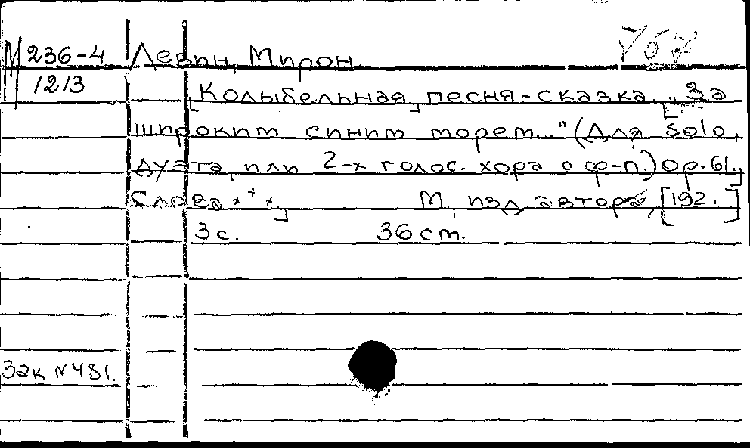 М 236-4 Левин, Мирон
1213
[Колыбельная] песня-сказка „За
широким синим морем..." (Для solo,
дуэта или 2-х голос. хора с ф-п.) Op. 61.
Слова ***] М, изд. автора, [192 .]
3 с. 36 cm.
Зак №481.